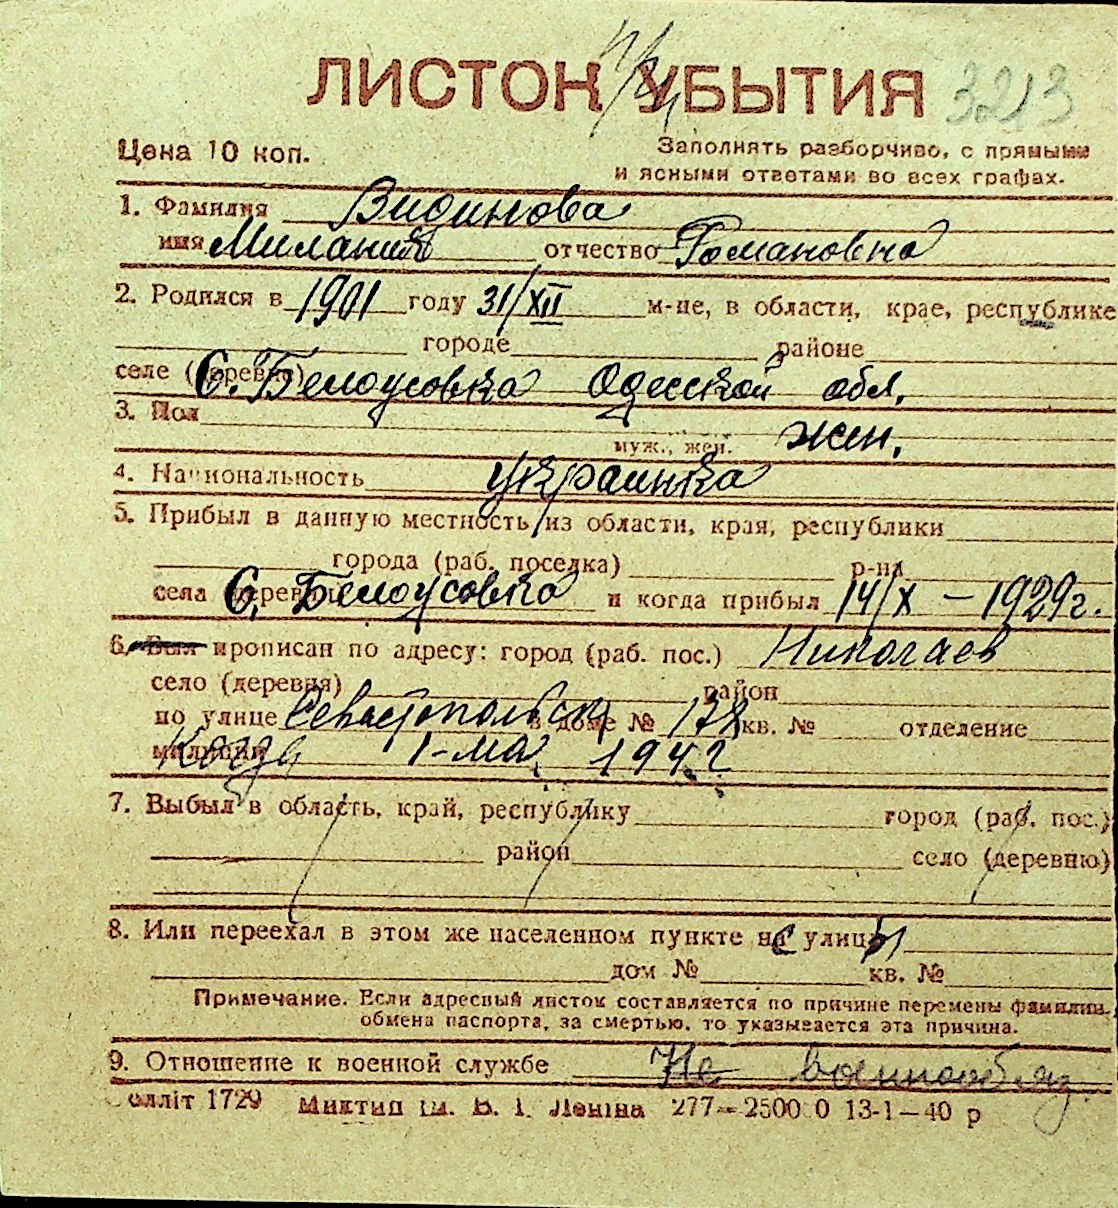 ЛИСТОК УБЫТИЯ 3213
Цена 10 коп.
Заполнять разборчиво, с прямыми
и ясными ответами во всех графах.
1. Фамилия Видинова
имя Милания отчество Романовна
2. Родился в 1901 году 31/XII м-це, в области, крае, республике
городе районе
селе (деревне) С. Белоусовка Одесской обл.
3. Пол жен.
муж., жен.
4. Национальность украинка
5. Прибыл в данную местность из области, края, республики
города (раб. поселка) р-на
села (деревни) С. Белоусовка и когда прибыл 14/X – 1929 г.
6. Был прописан по адресу: город (раб. пос.) Николаев
село (деревня) район
по улице Севастопольск в доме № 178 кв. № отделение
милиции Когда 1-мая 194 г.
7. Выбыл в область, край, республику город (раб. пос.)
район село (деревню)
8. Или переехал в этом же населенном пункте на улицу
дом № кв. №
Примечание. Если адресный листок составляется по причине перемены фамилии,
обмена паспорта, за смертью, то указывается эта причина.
9. Отношение к военной службе Не военнообяз
елліт 1729 Миктип ім. В. І. Леніна 277–2500 0 13-1–40 р